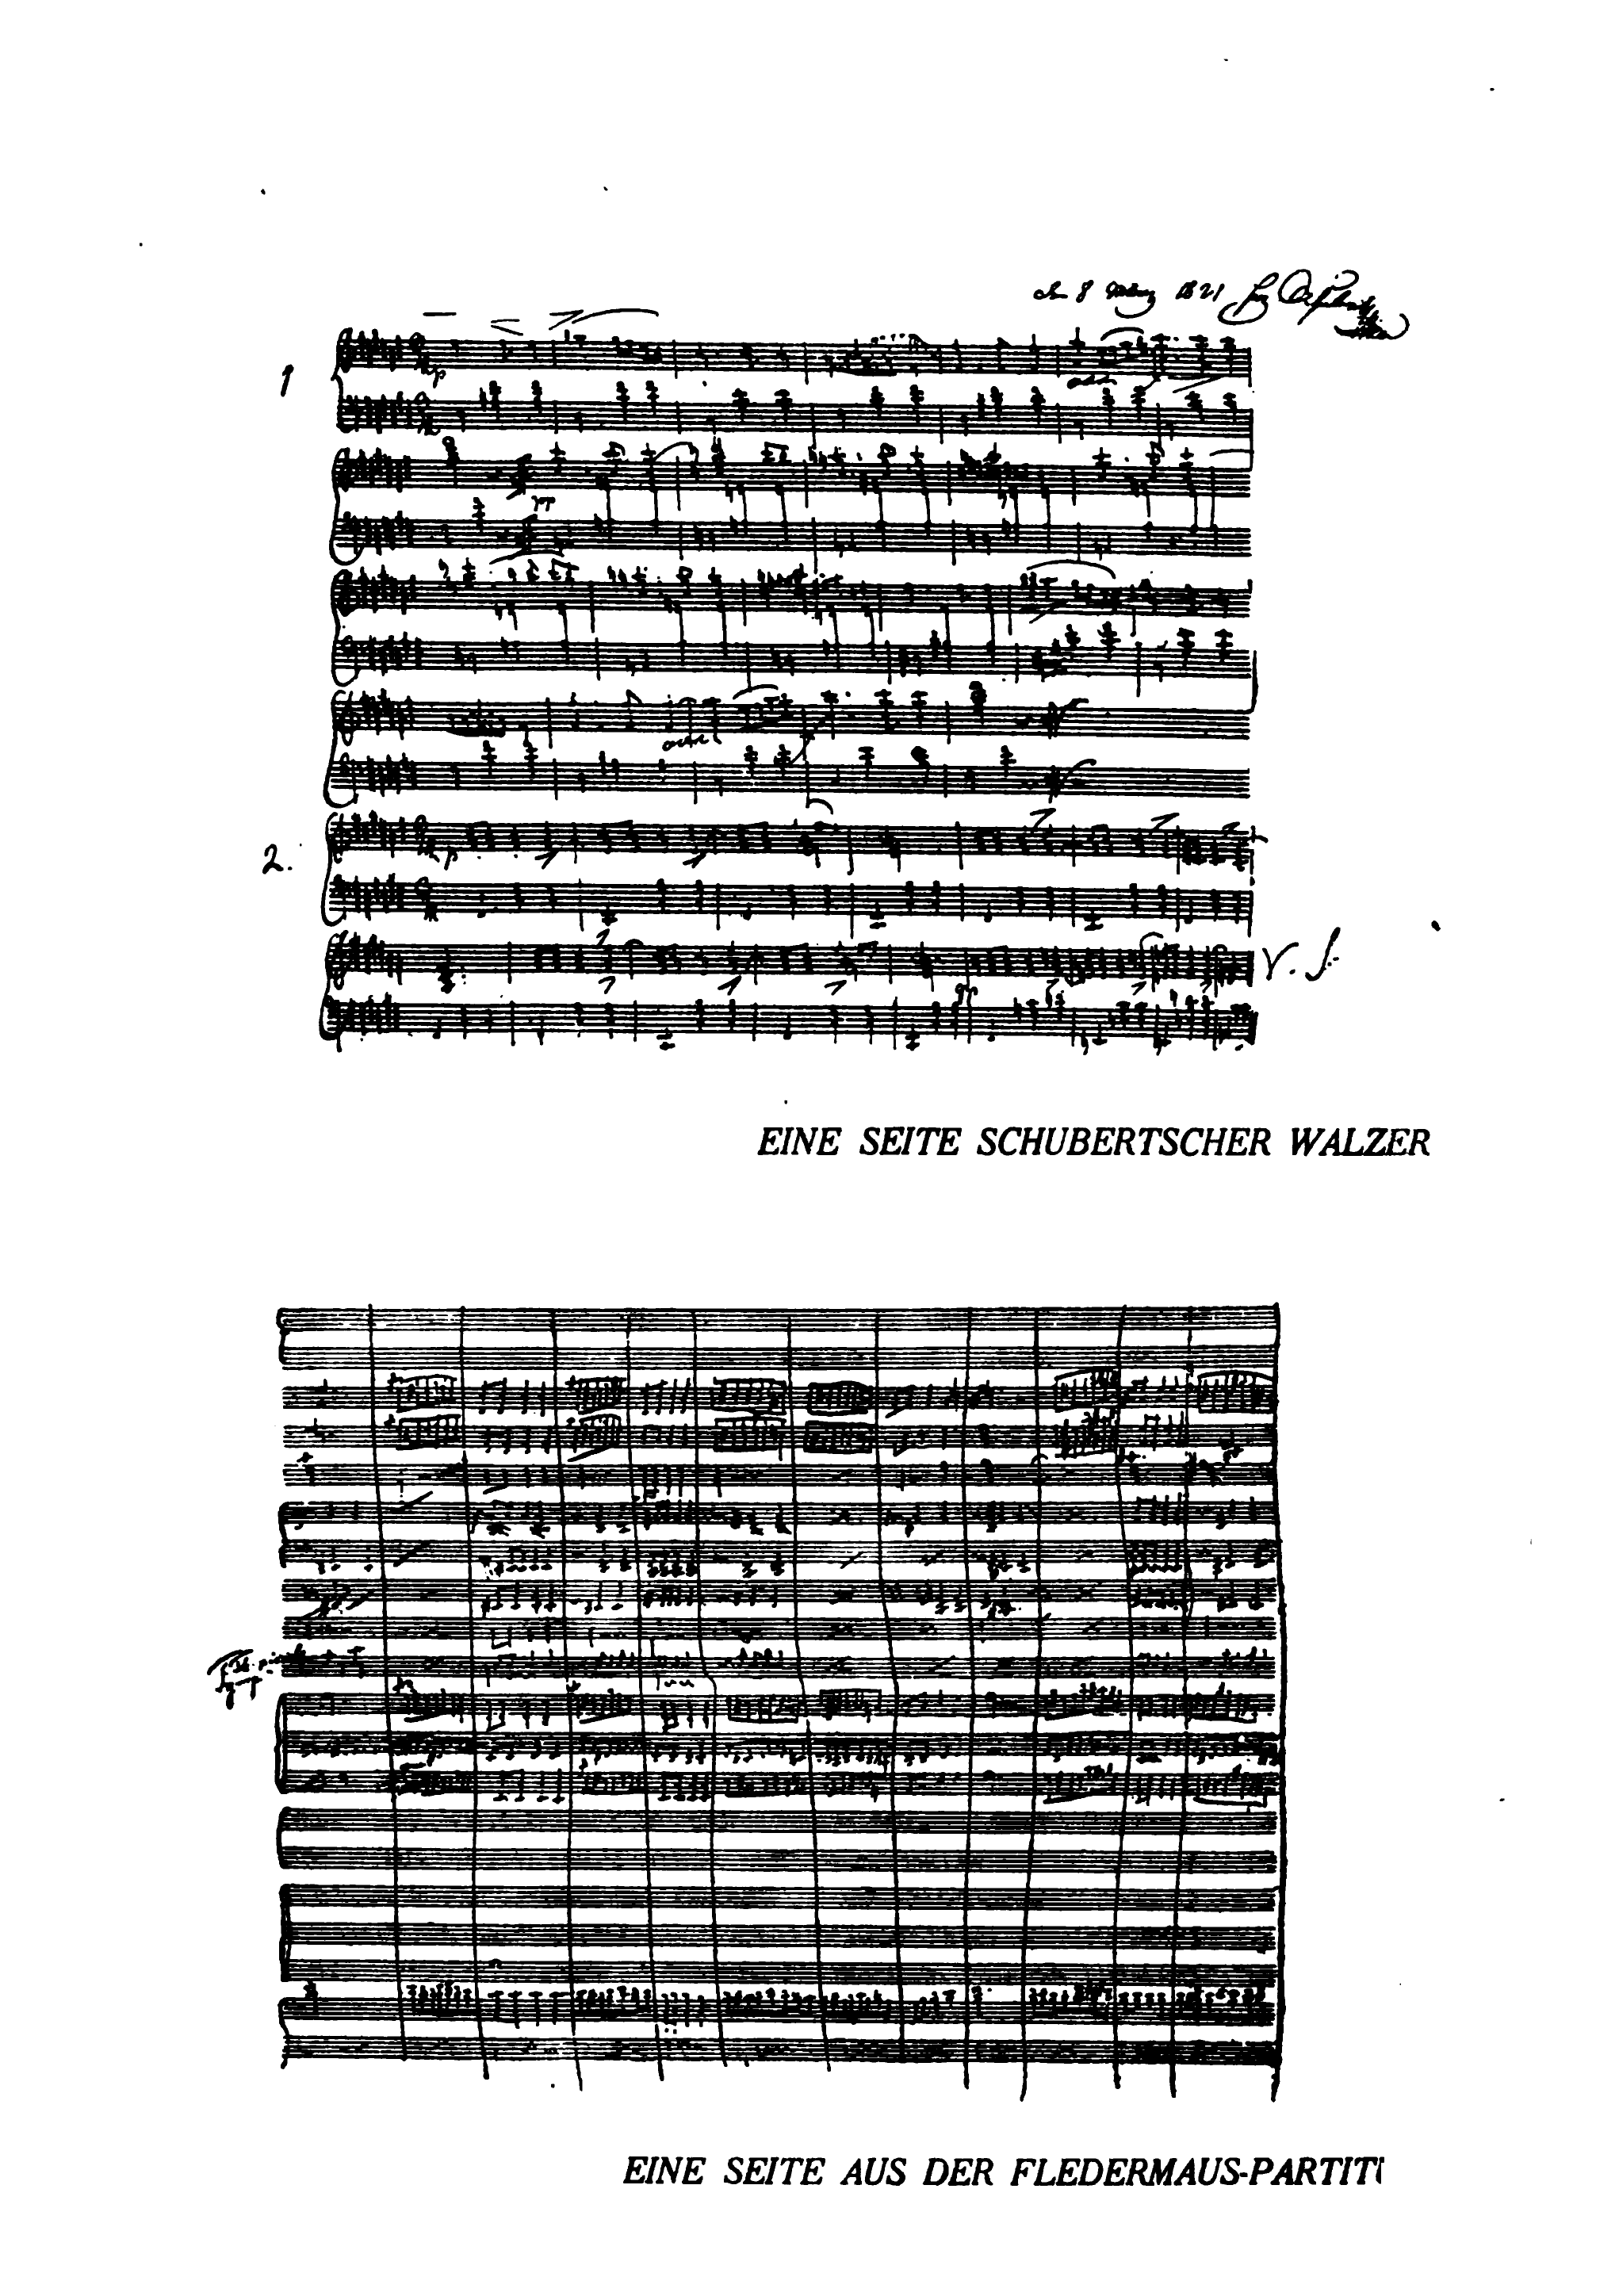 8 März 1821
1
2.
V. S.
EINE SEITE SCHUBERTSCHER WALZER
EINE SEITE AUS DER FLEDERMAUS-PARTIT